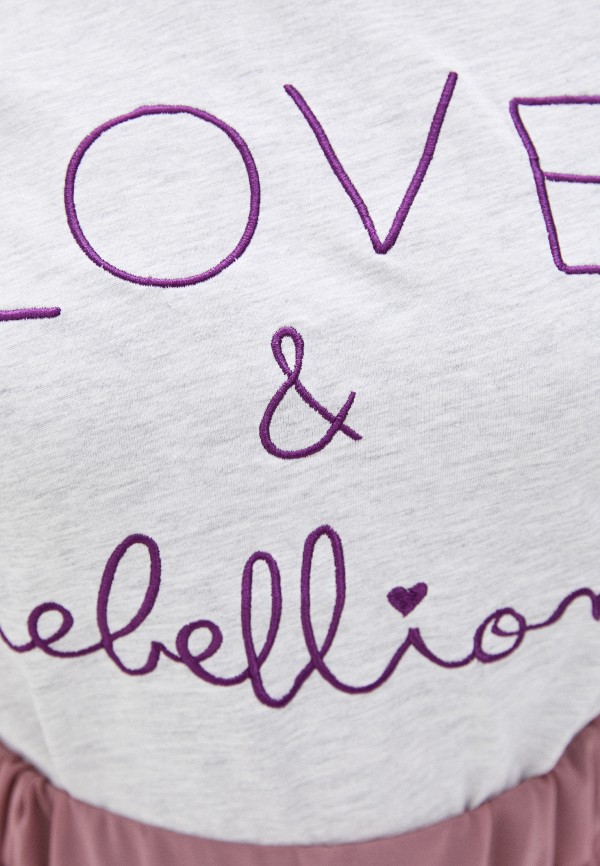 LOVE
&
rebellion